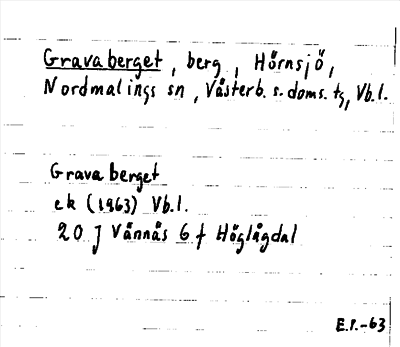 Gravaberget, berg, Hörnsjö,
Nordmalings sn, Västerb. s. doms. tg, Vb.l.
Gravaberget
ek (1963) Vb.l.
20 J Vännäs 6 f Höglågdal
E.I.-63